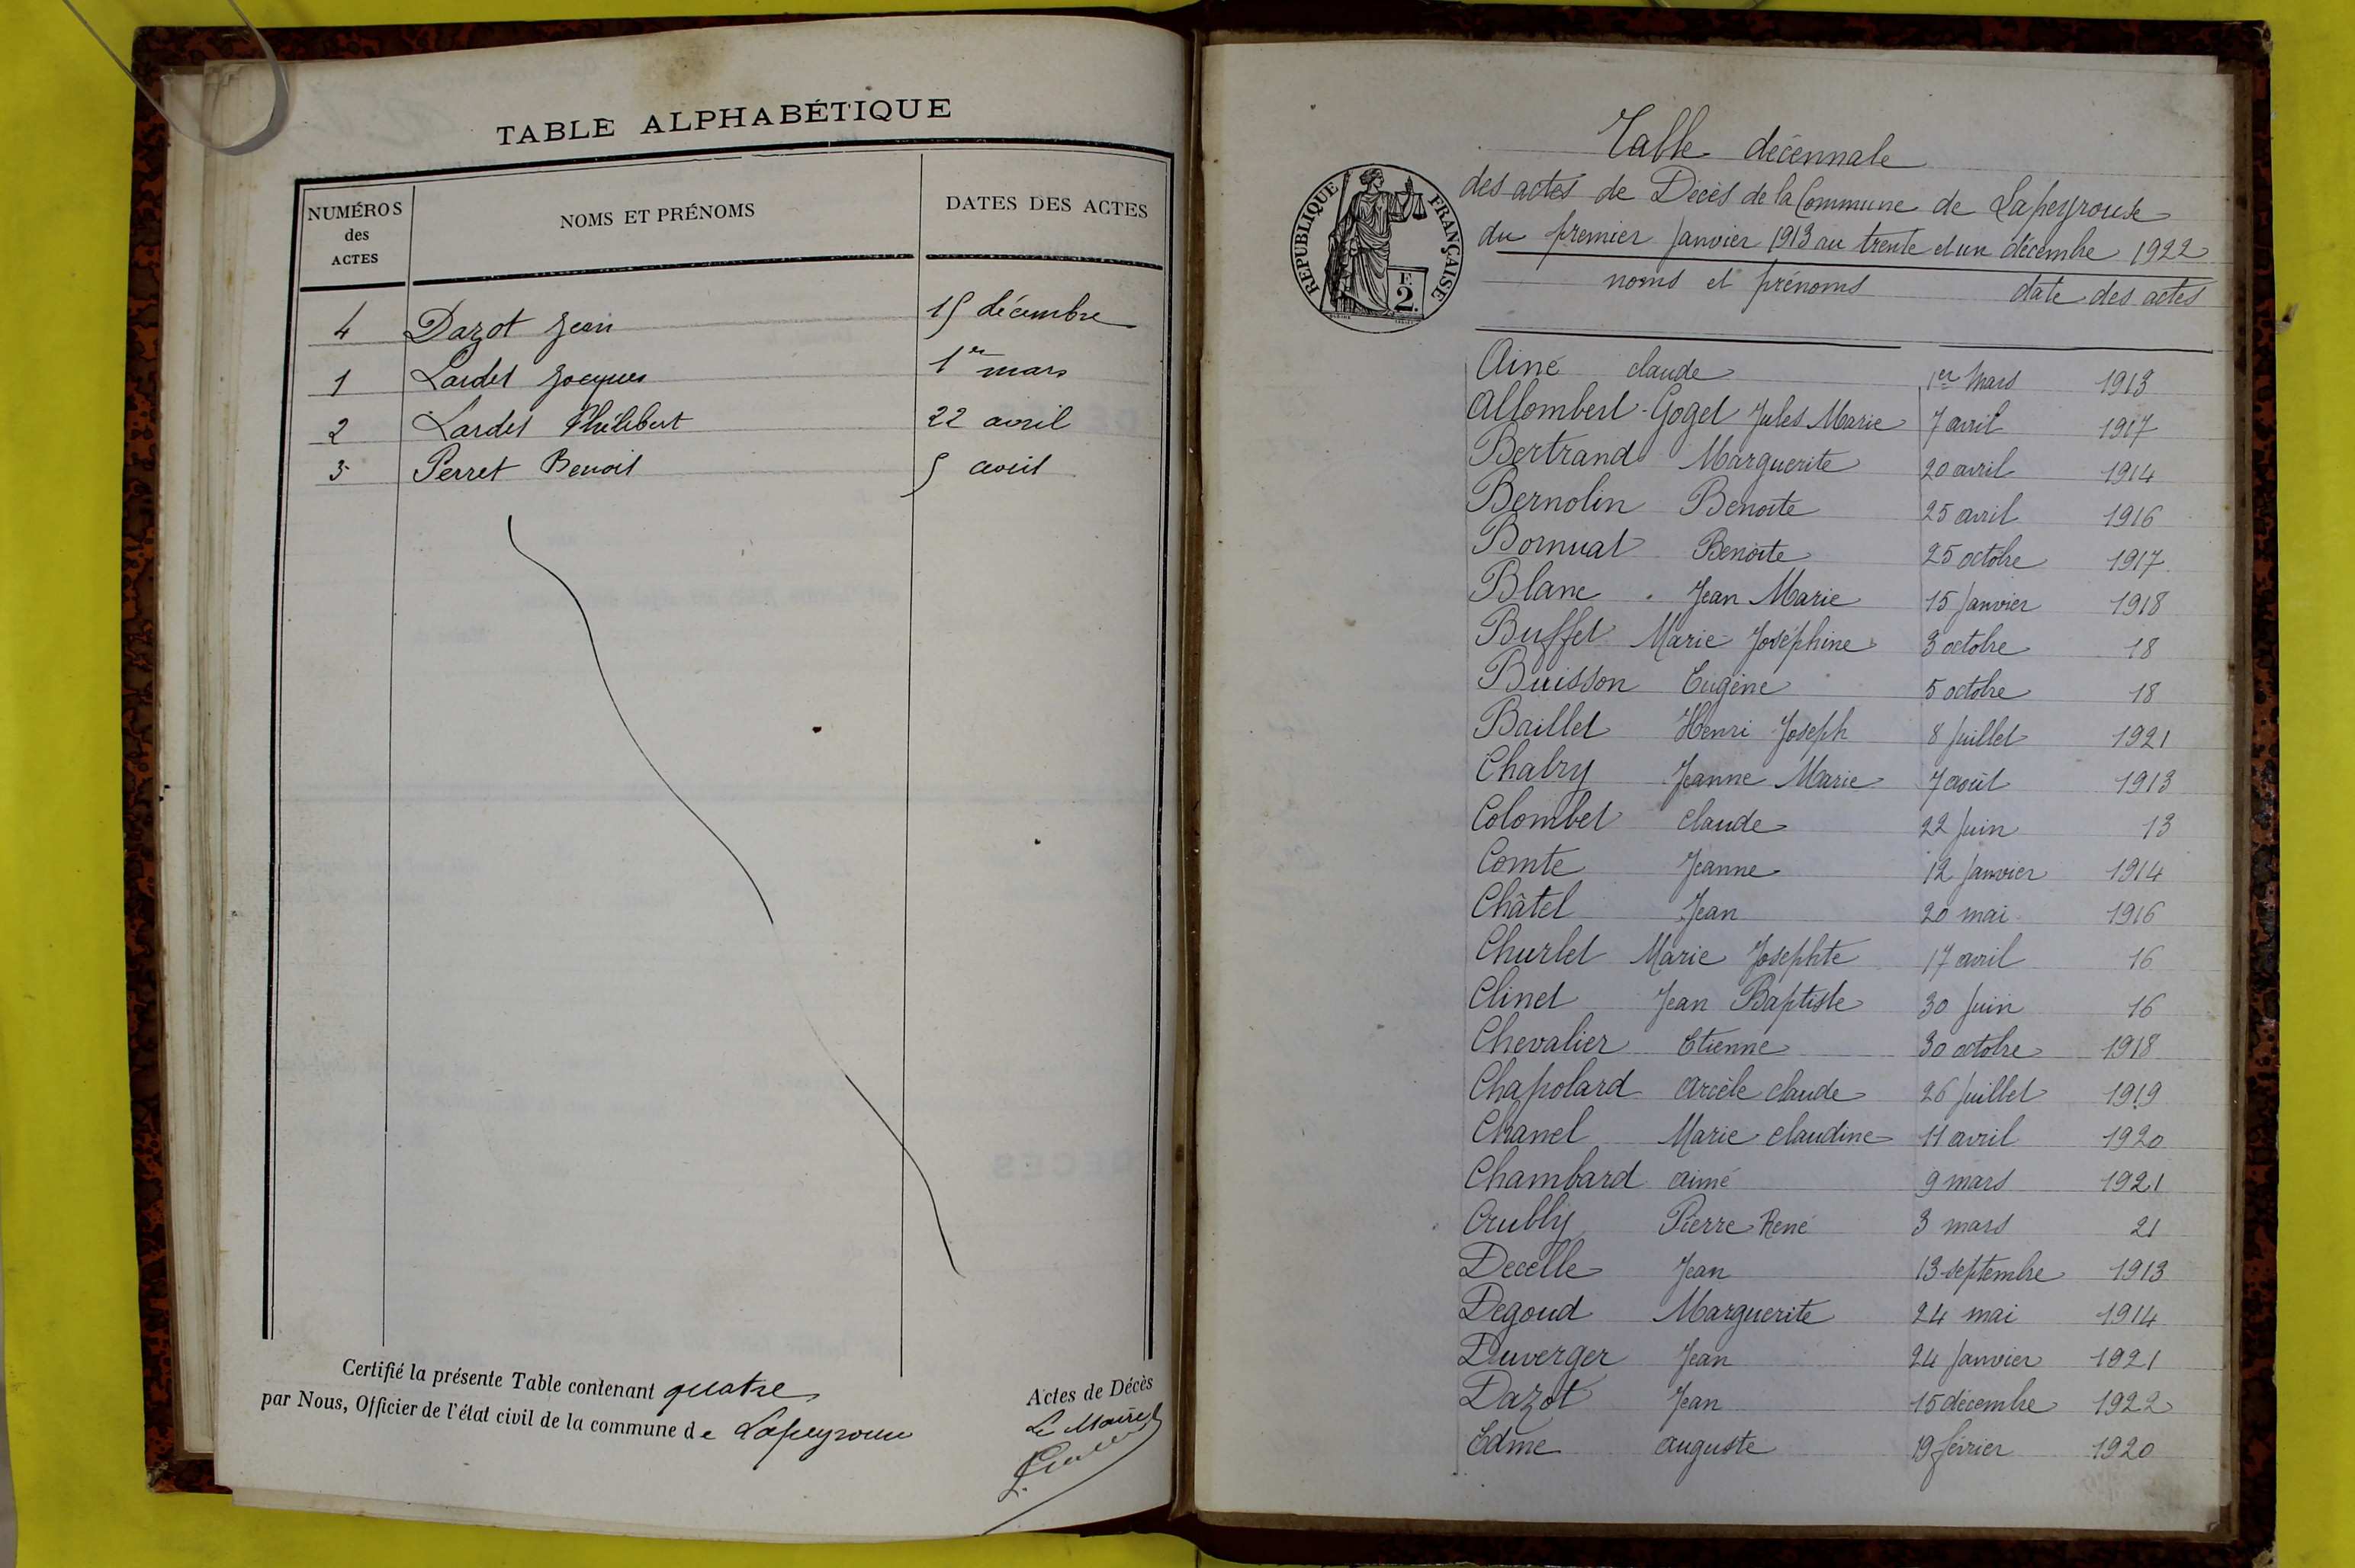 TABLE ALPHABÉTIQUE
NUMÉROS des ACTES NOMS ET PRÉNOMS DATES DES ACTES
4 Dazot Jean 15 décembre
1 Lardet Jacques 1er mars
2 Lardet Philibert 22 avril
3 Perret Benoit 5 août
Certifié la présente Table contenant quatre Actes de Décès
par Nous, Officier de l'état civil de la commune de Lapeyrouse Le Maire
RÉPUBLIQUE FRANÇAISE
F. 2.
Table décennale
des actes de Décès de la Commune de Lapeyrouse
du premier Janvier 1913 au trente et un décembre 1922
noms et prénoms date des actes
Ainé claude 1er Mars 1913
Allombert-Goget Jules Marie 7 avril 1917
Bertrand Marguerite 20 avril 1914
Bernolin Benoite 25 avril 1916
Bornuat Benoite 25 octobre 1917
Blanc Jean Marie 15 Janvier 1918
Buffet Marie Joséphine 3 octobre 18
Buisson Eugène 5 octobre 18
Baillet Henri Joseph 8 Juillet 1921
Chabry Jeanne Marie 7 août 1913
Colombet claude 22 Juin 13
Comte Jeanne 12 Janvier 1914
Châtel Jean 20 mai 1916
Churlet Marie Josephte 17 avril 16
Clinet Jean Baptiste 30 Juin 16
Chevalier Etienne 30 octobre 1918
Chapolard Arcèle claude 26 Juillet 1919
Chanel Marie claudine 11 avril 1920
Chambard aimé 9 mars 1921
Crubly Pierre René 3 mars 21
Decelle Jean 13 septembre 1913
Degoud Marguerite 24 mai 1914
Duverger Jean 24 Janvier 1921
Dazot Jean 15 décembre 1922
Edme auguste 19 février 1920